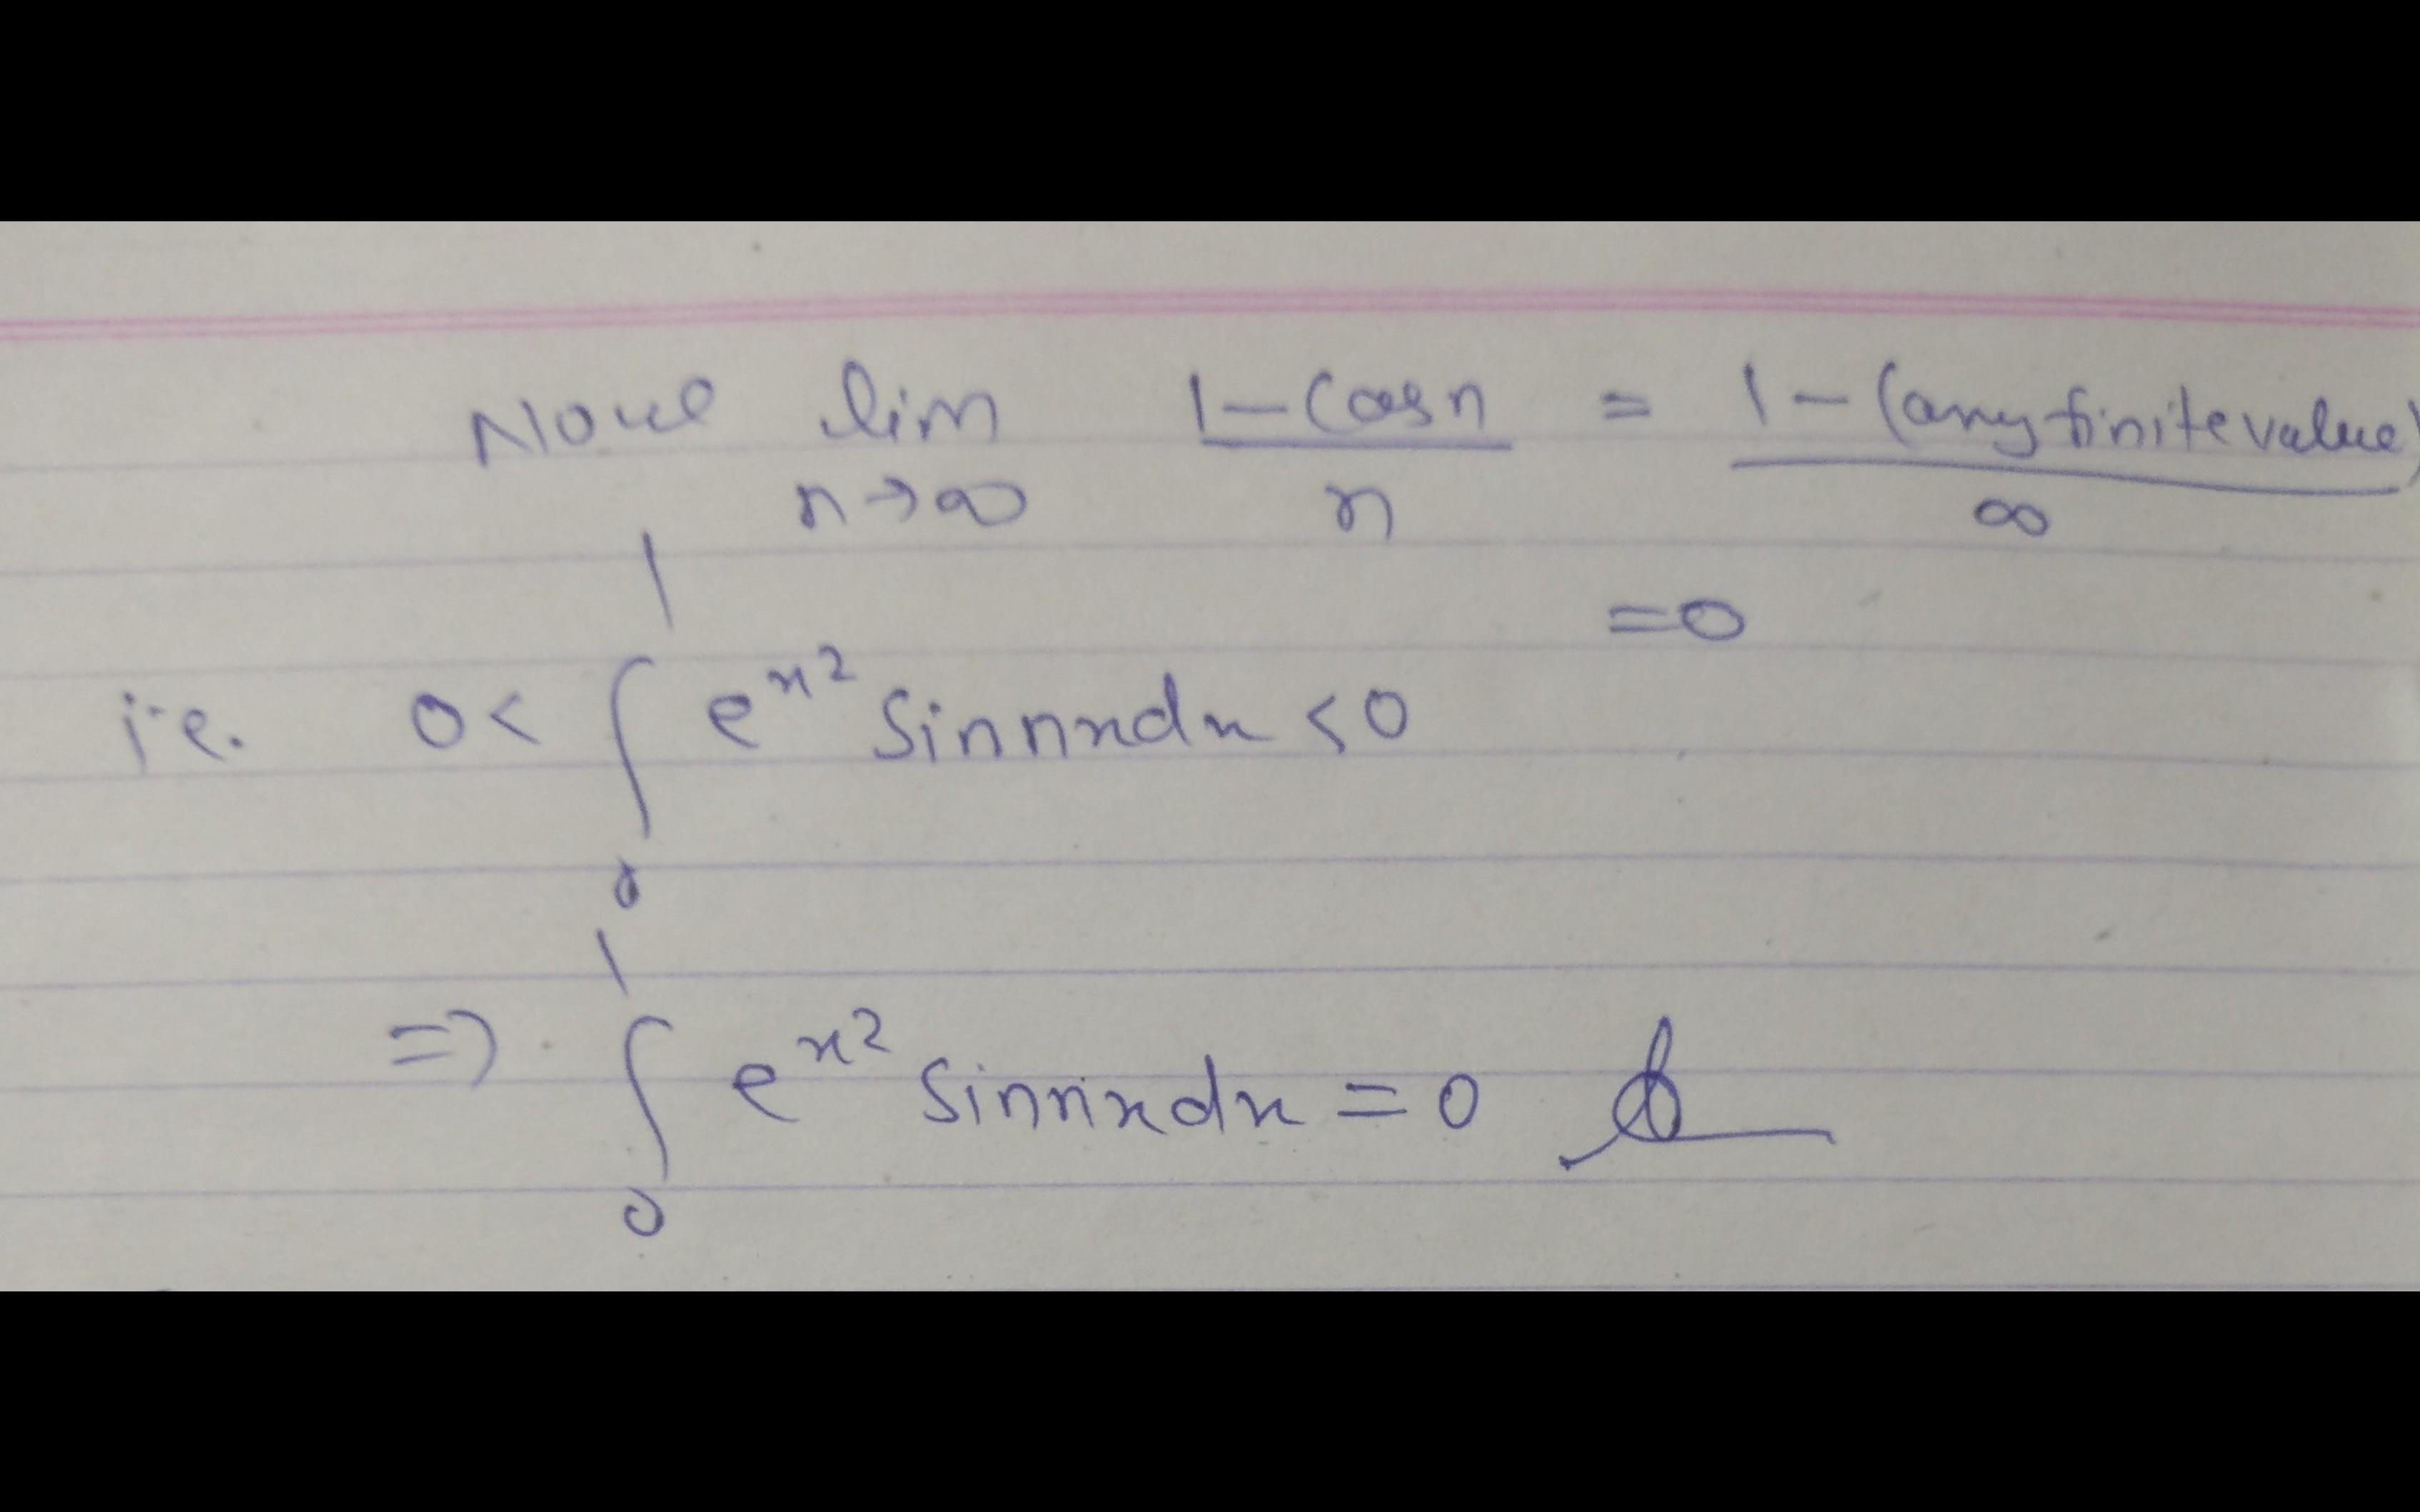 Now lim n→∞ (1-Cosn)/n = (1-(any finite value))/∞
=0
i.e. 0< ∫₀¹ e^x² Sinnxdx <0
=> ∫₀¹ e^x² Sinnxdx = 0